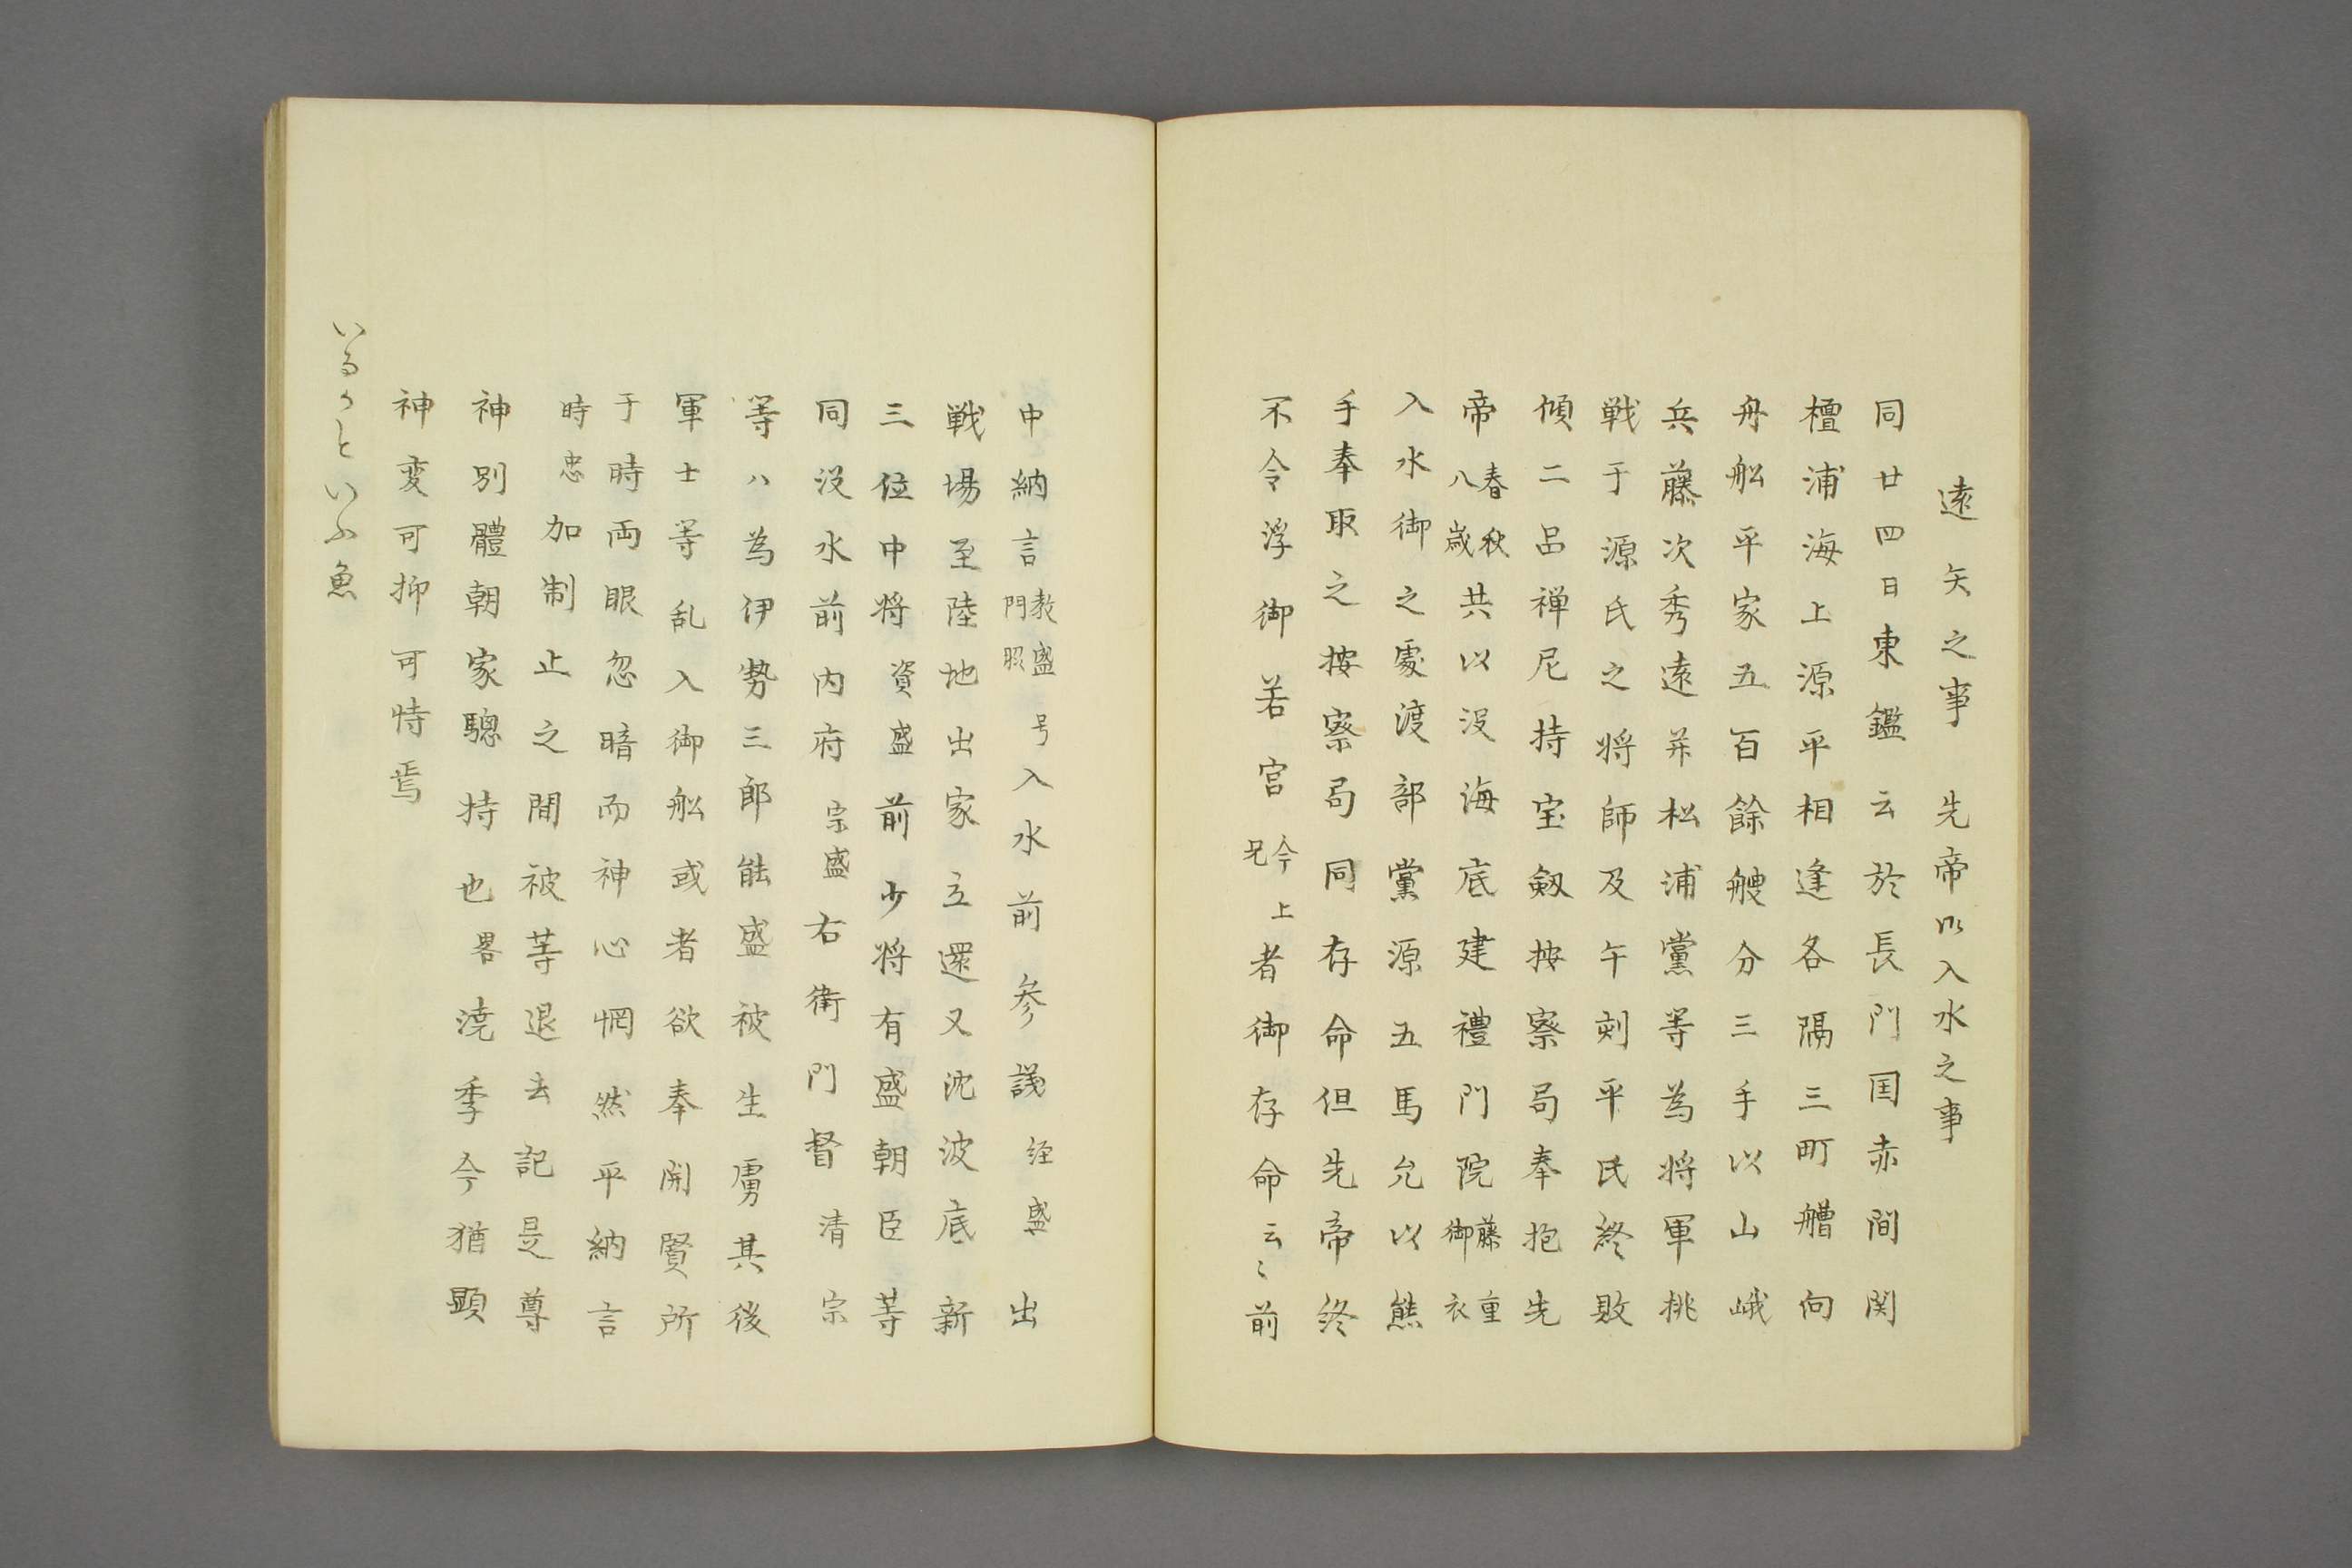 遠矢之事　先帝以入水之事
同廿四日東鑑云於長門国赤間関
檀浦海上源平相逢各隔三町艚向
舟舩平家五百餘艘分三手以山峨
兵藤次秀遠并松浦黨等為将軍挑
戦于源氏之将師及午剋平氏終敗
傾二品禅尼持宝剱按察局奉抱先
帝春秋八歳共以没海底建禮門院藤重御衣
入水御之處渡部黨源五馬允以熊
手奉取之按察局同存命但先帝終
不令浮御若宮今上兄者御存命云〻前
中納言教盛号門照入水前参議経盛出
戦場至陸地出家立還又沈波底新
三位中将資盛前少将有盛朝臣等
同没水前内府宗盛右衛門督清宗
等ハ為伊勢三郎能盛被生虜其後
軍士等乱入御舩或者欲奉開賢所
于時両眼忽暗而神心惘然平納言
時忠加制止之間被等退去記是尊
神別體朝家驄持也畧澆季今猶顕
神変可抑可恃焉
いるかといふ魚